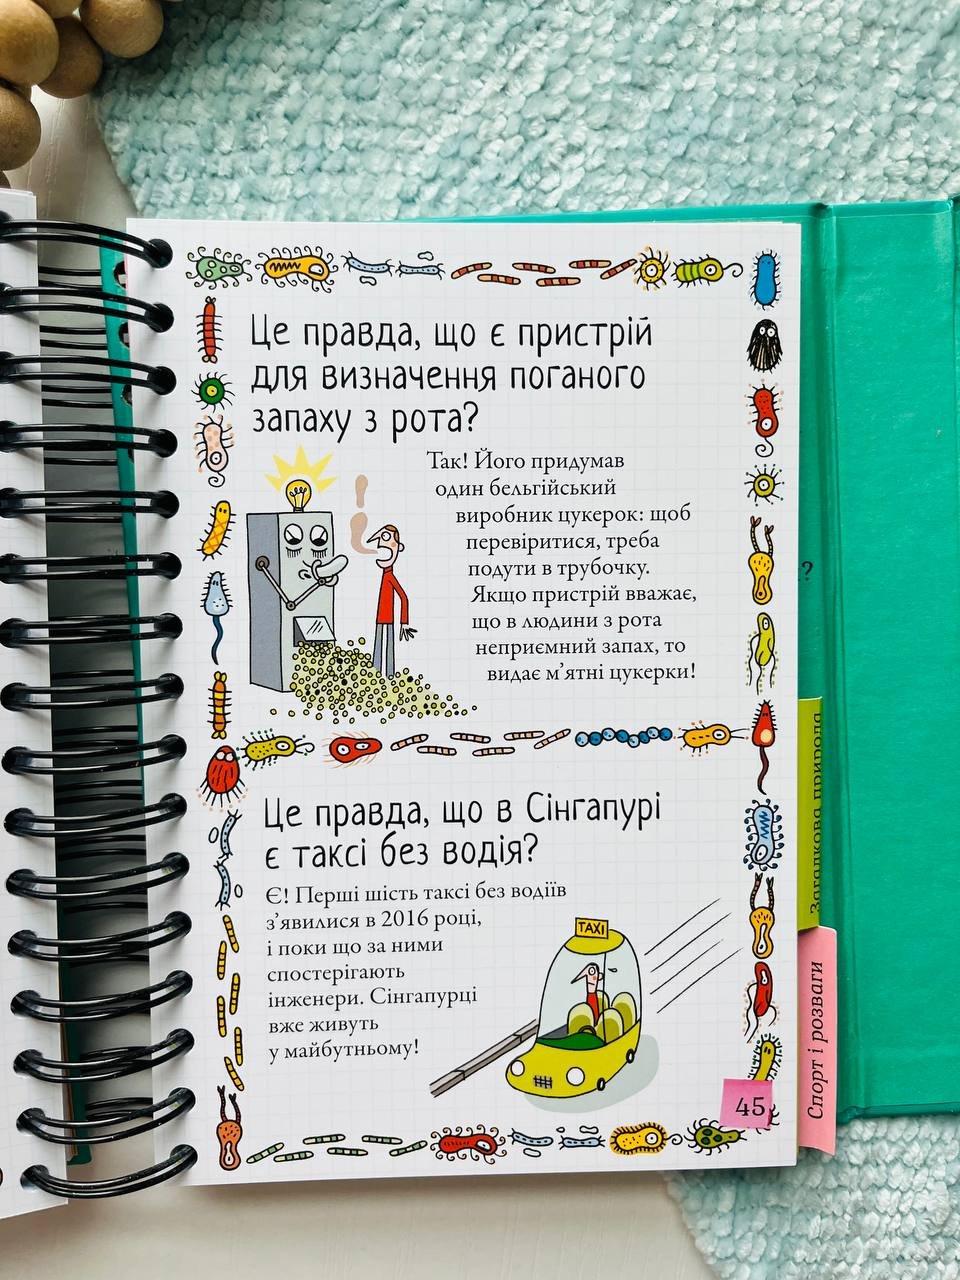 Це правда, що є пристрій
для визначення поганого
запаху з рота?
Так! Його придумав
один бельгійський
виробник цукерок: щоб
перевіритися, треба
подути в трубочку.
Якщо пристрій вважає,
що в людини з рота
неприємний запах, то
видає м’ятні цукерки!
Це правда, що в Сінгапурі
є таксі без водія?
Є! Перші шість таксі без водіїв
з’явилися в 2016 році,
і поки що за ними
спостерігають
інженери. Сінгапурці
вже живуть
у майбутньому!
TAXI
45
?
Загадкова природа
Спорт і розваги